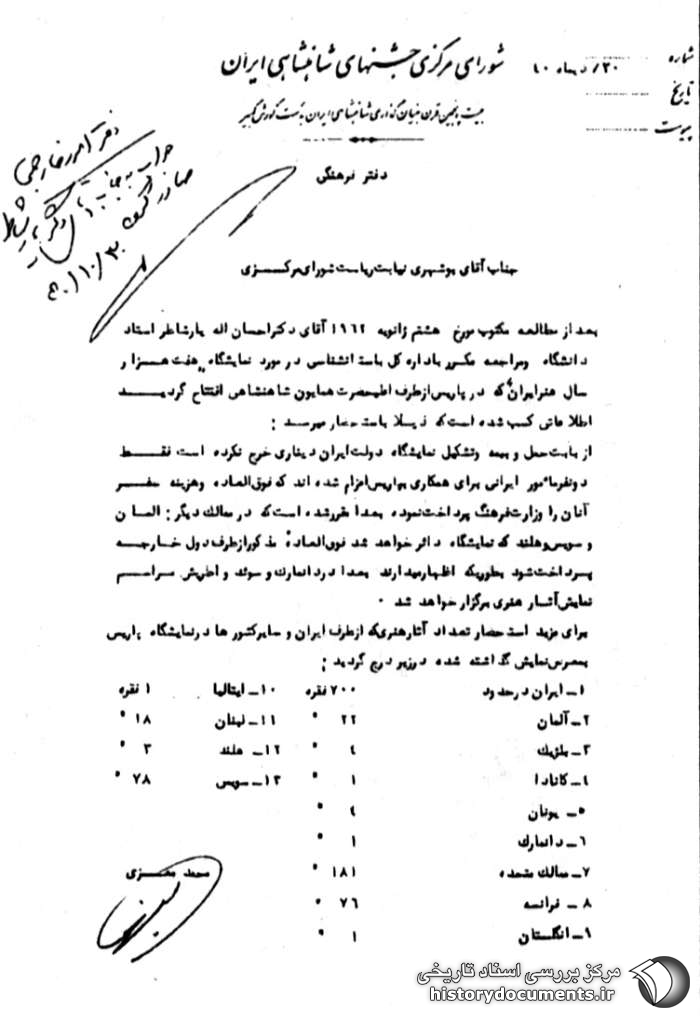 شماره ۳۰/دیماه ۴۰
تاریخ
پیوست
شورای مرکزی جشنهای شاهنشاهی ایران
بیست و پنجمین قرن بنیان گذاری شاهنشاهی ایران بدست کورش کبیر
دفتر فرهنگی
دفتر امور خارجی
جناب آقای بوشهری نیابت ریاست شورای مرکزی
بعد از مطالعه مکتوب مورخ هشتم ژانویه ۱۹۶۲ آقای دکتر احسان اله یارشاطر استاد
دانشگاه ومراجعه مکرر باداره کل باستانشناسی در مورد نمایشگاه "هفت هزار
سال هنر ایران" که در پاریس از طرف اعلیحضرت همایون شاهنشاهی افتتاح گردید
اطلاعاتی کسب شده است که ذیلا باستحضار میرسد :
از بابت حمل و بیمه وتشکیل نمایشگاه دولت ایران دیناری خرج نکرده است فقط
دونفر مأمور ایرانی برای همکاری بپاریس اعزام شده اند که فوق العاده وهزینه سفر
آنان را وزارت فرهنگ پرداخت نموده بعدا مقرر شده است که در ممالک دیگر : المان
و سویس وهلند که نمایشگاه دائر خواهد شد فوق العاده مذکور از طرف دول خارجه
پرداخت شود بطوریکه اظهار میدارند بعدا در دانمارک و سوئد و اطریش مراسم
نمایش آثار هنری برگزار خواهد شد .
برای مزید استحضار تعداد آثار هنری که از طرف ایران و سایر کشور ها در نمایشگاه پاریس
بمعرض نمایش گذاشته شده در زیر درج گردید :
۱ـ ایران در حدود ۷۰۰ فقره ۱۰ـ ایتالیا ۱ فقره
۲ـ آلمان ۲۲ " ۱۱ـ لبنان ۱۸ "
۳ـ بلژیک ۴ " ۱۲ـ هلند ۳ "
۴ـ کانادا ۱ " ۱۳ـ سویس ۷۸ "
۵ـ یونان ۴ "
۶ـ دانمارک ۱ "
۷ـ ممالک متحده ۱۸۱ "
۸ـ فرانسه ۷۶ "
۹ـ انگلستان ۱ "
محمد معزی
مرکز بررسی اسناد تاریخی
historydocuments.ir